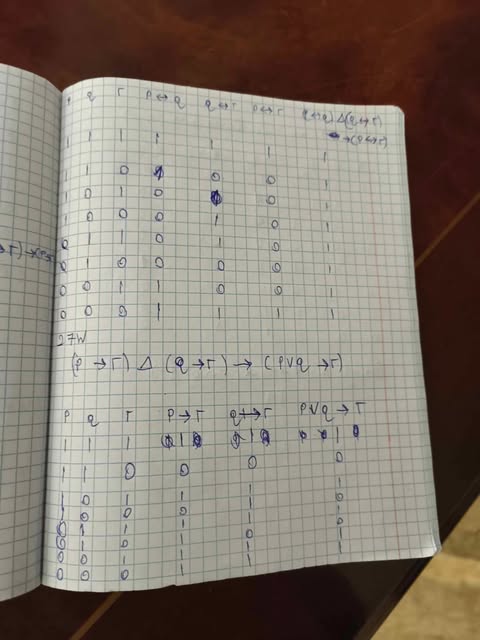 P q r p↔q q↔r p↔r (p↔q) Δ (q↔r)
→(p↔r)
1 1 1 1 1 1 1
1 1 0 1 0 0 1
1 0 1 0 0 1
1 0 0 0 1 0 1
0 1 1 0 1 0 1
0 1 0 0 0 0 1
0 0 1 1 0 0 1
0 0 0 1 1 1 1
r)→(p
27W
(P → r) Δ (q → r) → (P∨q → r)
P q r P→r q→r P∨q → r
1 1 1 1 1 1
1 1 0 0 0 0
1 0 1 1 1 1
1 0 0 0 1 0
0 1 1 1 1 1
0 1 0 1 0 0
0 0 1 1 1 1
0 0 0 1 1 1